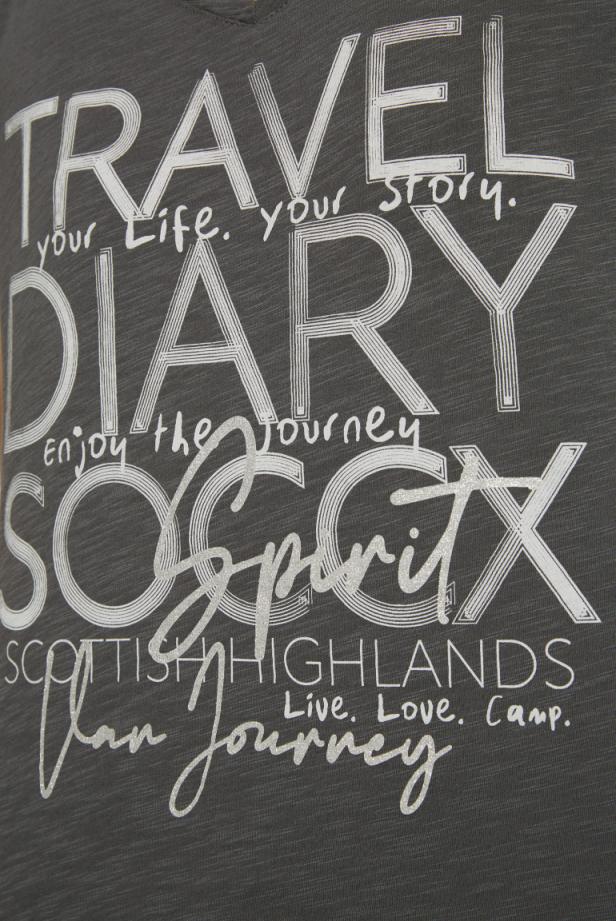 TRAVEL
your Life. your Story.
DIARY
Enjoy the Journey
SOCCX
Spirit
SCOTTISH HIGHLANDS
Live. Love. Camp.
Van Journey